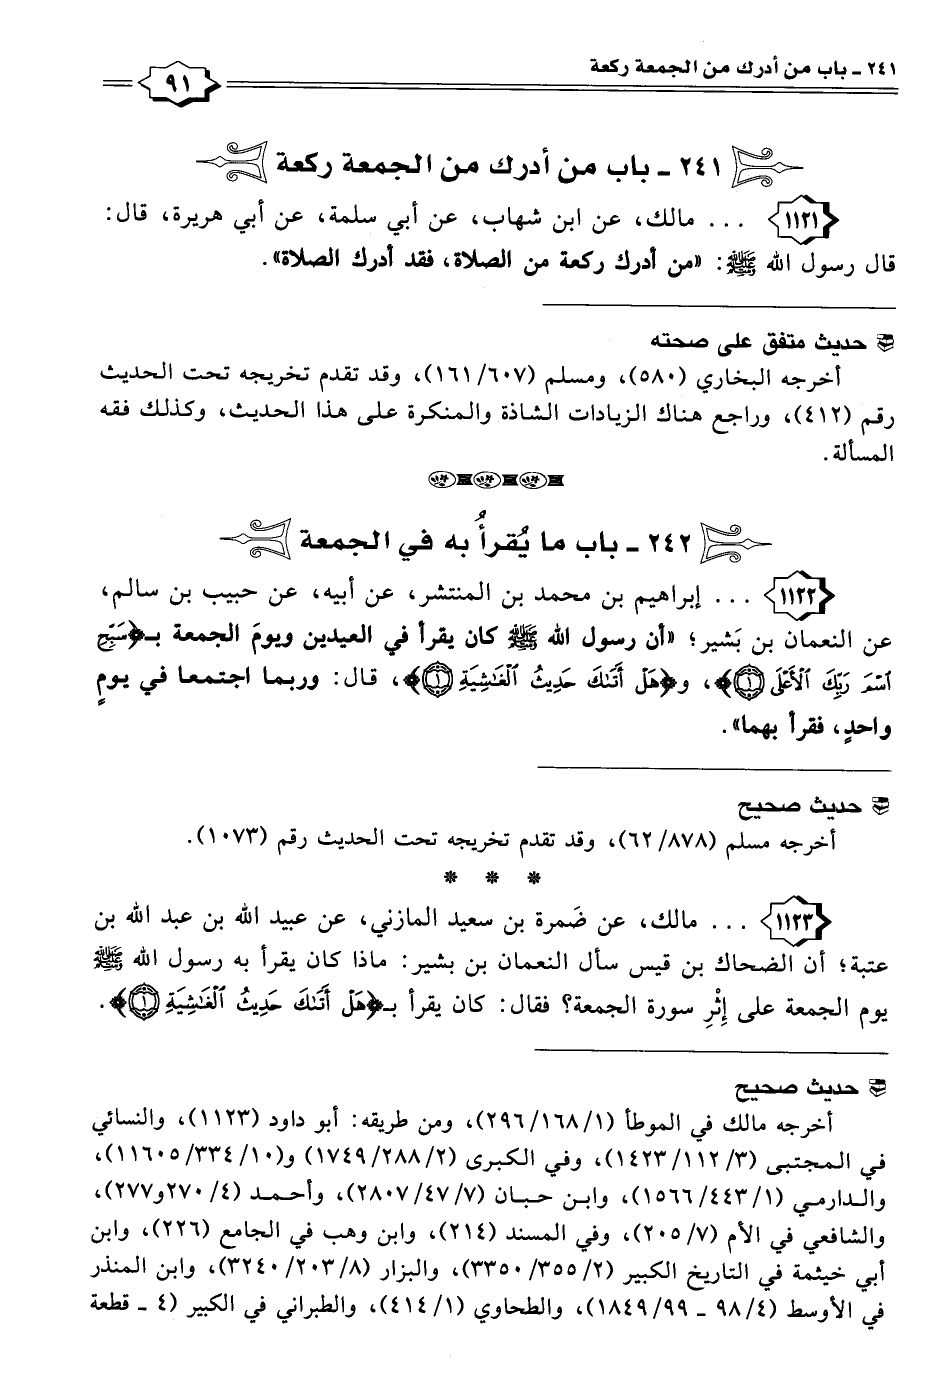 ٢٤١ - باب من أدرك من الجمعة ركعة
٩١
٢٤١ - باب من أدرك من الجمعة ركعة
١١٢١ ... مالك، عن ابن شهاب، عن أبي سلمة، عن أبي هريرة، قال:
قال رسول الله ﷺ: «من أدرك ركعة من الصلاة، فقد أدرك الصلاة».
حديث متفق على صحته
أخرجه البخاري (٥٨٠)، ومسلم (١٦١/٦٠٧)، وقد تقدم تخريجه تحت الحديث
رقم (٤١٢)، وراجع هناك الزيادات الشاذة والمنكرة على هذا الحديث، وكذلك فقه
المسألة.
٢٤٢ - باب ما يُقرأُ به في الجمعة
١١٢٢ ... إبراهيم بن محمد بن المنتشر، عن أبيه، عن حبيب بن سالم،
عن النعمان بن بَشير؛ «أن رسول الله ﷺ كان يقرأ في العيدين ويومَ الجمعة بـ﴿سَبِّحِ
ٱسْمَ رَبِّكَ ٱلْأَعْلَى ١﴾، و﴿هَلْ أَتَىٰكَ حَدِيثُ ٱلْغَٰشِيَةِ ١﴾، قال: وربما اجتمعا في يومٍ
واحدٍ، فقرأ بهما».
حديث صحيح
أخرجه مسلم (٦٢/٨٧٨)، وقد تقدم تخريجه تحت الحديث رقم (١٠٧٣).
* * *
١١٢٣ ... مالك، عن ضَمرة بن سعيد المازني، عن عبيد الله بن عبد الله بن
عتبة؛ أن الضحاك بن قيس سأل النعمان بن بشير: ماذا كان يقرأ به رسول الله ﷺ
يوم الجمعة على إِثْرِ سورة الجمعة؟ فقال: كان يقرأ بـ﴿هَلْ أَتَىٰكَ حَدِيثُ ٱلْغَٰشِيَةِ ١﴾.
حديث صحيح
أخرجه مالك في الموطأ (٢٩٦/١٦٨/١)، ومن طريقه: أبو داود (١١٢٣)، والنسائي
في المجتبى (١٤٢٣/١١٢/٣)، وفي الكبرى (١٧٤٩/٢٨٨/٢) و(١١٦٠٥/٣٣٤/١٠)،
والدارمي (١٥٦٦/٤٤٣/١)، وابن حبان (٢٨٠٧/٤٧/٧)، وأحمد (٢٧٠/٤ و٢٧٧)،
والشافعي في الأم (٢٠٥/٧)، وفي المسند (٢١٤)، وابن وهب في الجامع (٢٢٦)، وابن
أبي خيثمة في التاريخ الكبير (٣٣٥٠/٣٥٥/٢)، والبزار (٣٢٤٠/٢٠٣/٨)، وابن المنذر
في الأوسط (٩٨/٤ - ١٨٤٩/٩٩)، والطحاوي (٤١٤/١)، والطبراني في الكبير (٤ - قطعة